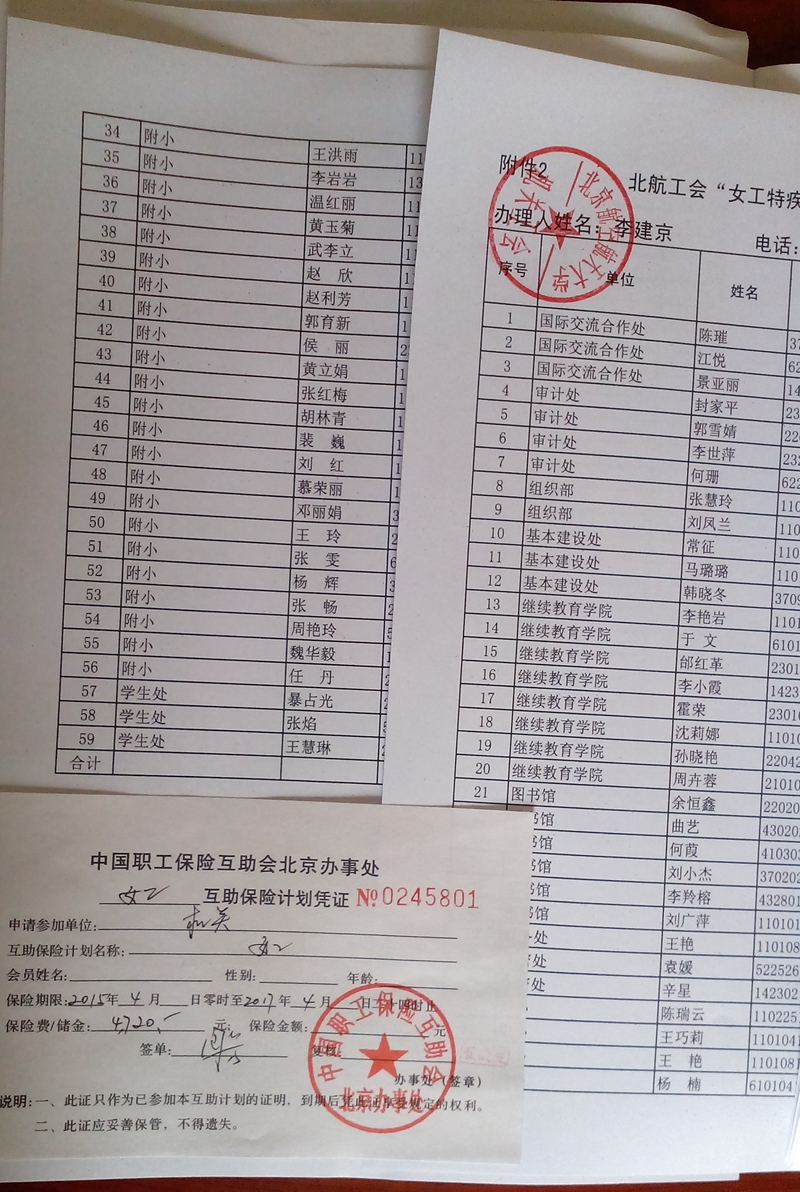 34 附小
35 附小 王洪雨 11
36 附小 李岩岩 13
37 附小 温红丽 11
38 附小 黄玉菊 11
39 附小 武李立 11
40 附小 赵 欣 1
41 附小 赵利芳 1
42 附小 郭育新 1
43 附小 侯 丽 2
44 附小 黄立娟 1
45 附小 张红梅 1
46 附小 胡林青 1
47 附小 裴 巍 1
48 附小 刘 红 1
49 附小 慕荣丽 1
50 附小 邓丽娟 3
51 附小 王 玲
52 附小 张 雯 6
53 附小 杨 辉 3
54 附小 张 畅 2
55 附小 周艳玲 5
56 附小 魏华毅 1
57 学生处 任 丹 2
58 学生处 暴占光
59 学生处 张焰
合计 王慧琳
附件2
北航工会“女工特疾
办理人姓名：李建京 电话：
序号 单位 姓名
1 国际交流合作处 陈璀 37
2 国际交流合作处 江悦 62
3 国际交流合作处 景亚丽 14
4 审计处 封家平 23
5 审计处 郭雪婧 22
6 审计处 李世萍 23
7 审计处 何珊 622
8 组织部 张慧玲 110
9 组织部 刘凤兰 110
10 基本建设处 常征 110
11 基本建设处 马璐璐 1101
12 基本建设处 韩晓冬 3709
13 继续教育学院 李艳岩 1101
14 继续教育学院 于 文 6101
15 继续教育学院 邰红革 2301
16 继续教育学院 李小霞 1423
17 继续教育学院 霍荣 23010
18 继续教育学院 沈莉娜 11010
19 继续教育学院 孙晓艳 22042
20 继续教育学院 周卉蓉 21010
21 图书馆 余恒鑫 22020
书馆 曲艺 43020
书馆 何葭 410303
书馆 刘小杰 370202
书馆 李羚榕 432801
书馆 刘广萍 110101
处 王艳 110108
处 袁媛 522526
处 辛星 142302
陈瑞云 110225
王巧莉 1101041
王 艳 1101081
杨 楠 6101041
北京航空航天大学
机关工会
中国职工保险互助会北京办事处
女工 互助保险计划凭证 №0245801
申请参加单位：机关
互助保险计划名称：女工
会员姓名： 性别： 年龄：
保险期限：2015年 4 月 日零时至2017 年 4 月 日二十四时止
保险费/储金：4,720.- 元 保险金额： 元
签单： 复核：
办事处（签章）
中国职工保险互助会
北京办事处
说明：一、此证只作为已参加本互助计划的证明，到期后凭此证享受规定的权利。
二、此证应妥善保管，不得遗失。